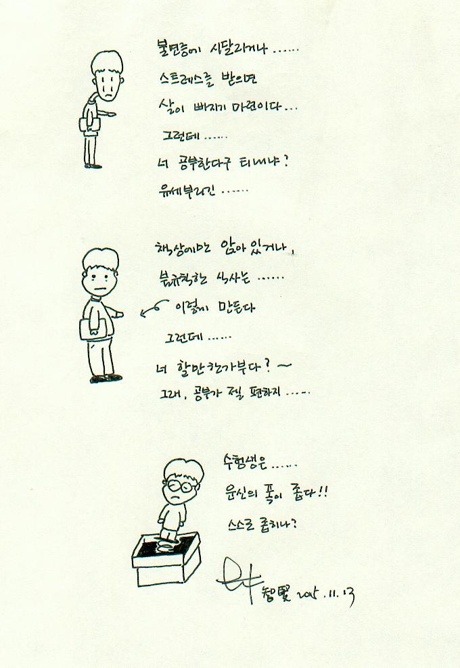 불면증에 시달리거나 ......
스트레스를 받으면
살이 빠지기 마련이다...
그런데 ......
너 공부한다구 티내냐?
유세부리긴 ......
책상에만 앉아 있거나,
불규칙한 식사는 ......
이렇게 만든다
그런데 ......
너 할만한가부다? ~
그래, 공부가 젤 편하지 ......
수험생은 ......
운신의 폭이 좁다!!
스스로 좁히나?
2015.11.13